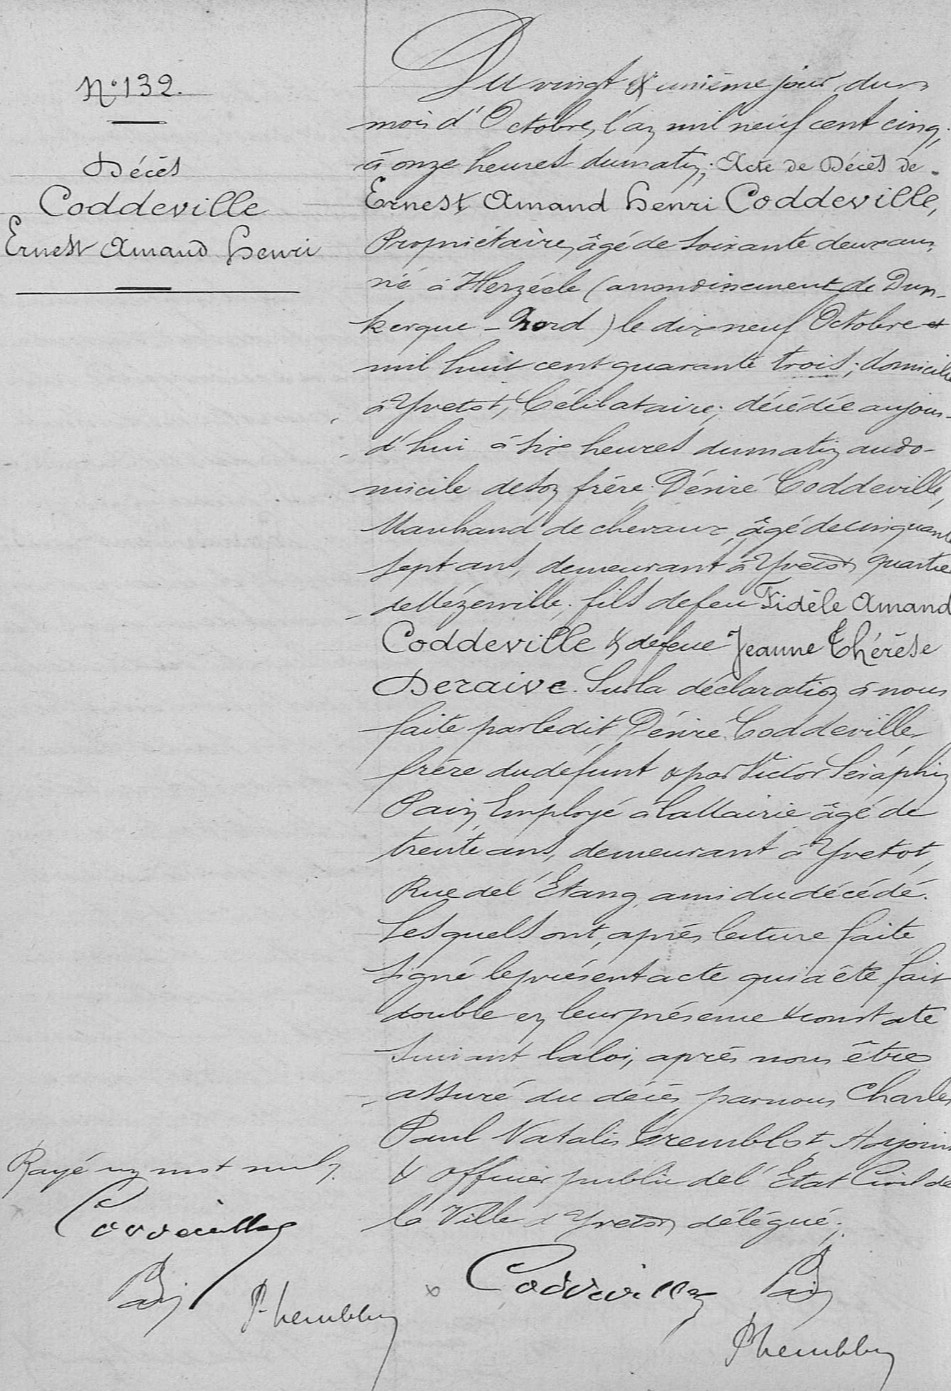 N° 132.
Décès
Coddeville
Ernest Amand Henri
Du vingt & unième jour du
mois d'Octobre, l'an mil neuf cent cinq,
à onze heures du matin; Acte de Décès de
Ernest Amand Henri Coddeville,
Propriétaire, âgé de soixante deux ans,
né à Herzéele (arrondissement de Dun-
kerque - Nord) le dix neuf Octobre
mil huit cent quarante trois; domicilié
à Yvetot, Célibataire; décédé aujour-
d'hui à six heures du matin au do-
micile de son frère Désiré Coddeville,
Marchand de chevaux, âgé de cinquante
sept ans, demeurant à Yvetot, quartier
de Mézerville; fils de feu Fidèle Amand
Coddeville & de feue Jeanne Thérèse
Deraive. Sur la déclaration à nous
faite par ledit Désiré Coddeville,
frère du défunt & par Victor Séraphin
Pain, Employé à la Mairie âgé de
trente ans, demeurant à Yvetot,
Rue de l'Étang, ami du décédé.
Lesquels ont, après lecture faite,
signé le présent acte qui a été fait
double en leur présence & constaté
suivant la loi, après nous être
assuré du décès par nous Charles
Paul Natalis Tremblot Adjoint
& officier public de l'État Civil de
la Ville d'Yvetot, délégué.
Rayé un mot nul.
Coddeville
Pain
Coddeville
Pain